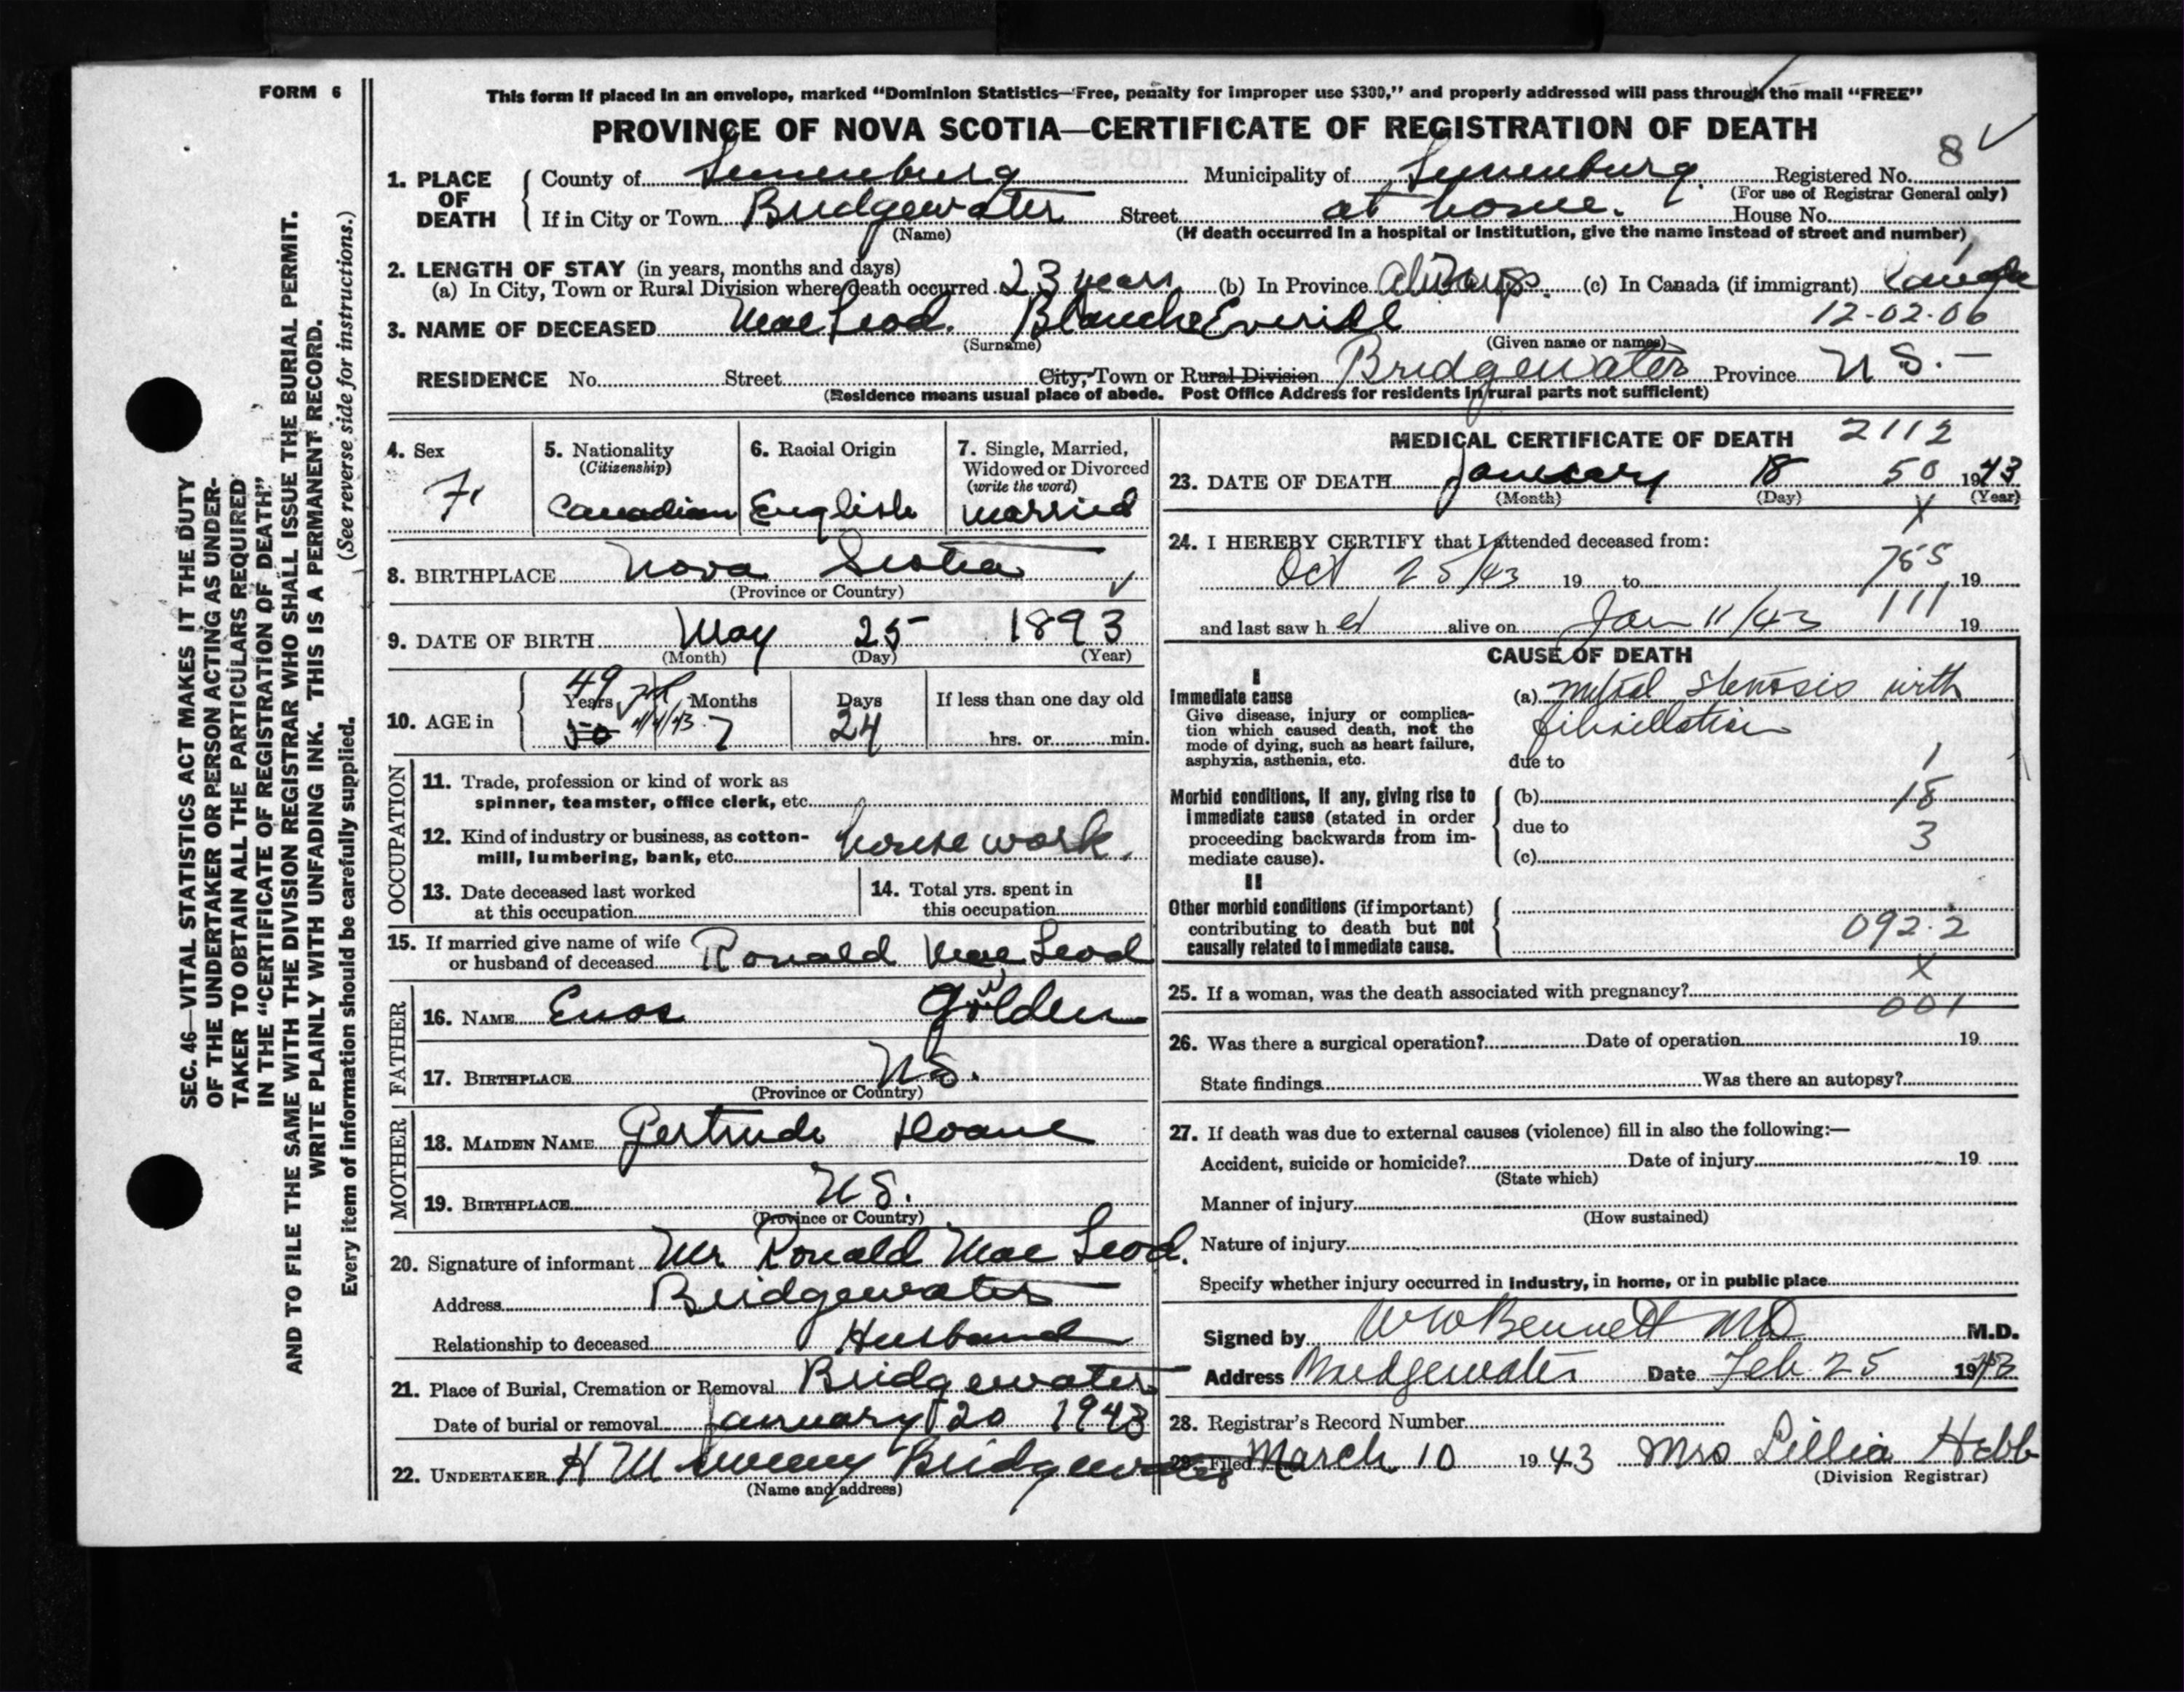 FORM 6
This form if placed in an envelope, marked "Dominion Statistics—Free, penalty for improper use $300," and properly addressed will pass through the mail "FREE"
PROVINCE OF NOVA SCOTIA—CERTIFICATE OF REGISTRATION OF DEATH
8 ✓
1. PLACE OF DEATH County of Lunenburg Municipality of Lunenburg. Registered No.
(For use of Registrar General only)
If in City or Town Bridgewater Street at home. House No.
(Name) (If death occurred in a hospital or institution, give the name instead of street and number)
2. LENGTH OF STAY (in years, months and days)
(a) In City, Town or Rural Division where death occurred 23 years (b) In Province Always. (c) In Canada (if immigrant) Canada
12-02-06
3. NAME OF DECEASED MacLeod. Blanche
(Surname) (Given name or names)
RESIDENCE No. Street City, Town or Rural Division Bridgewater Province N S. —
(Residence means usual place of abode. Post Office Address for residents in rural parts not sufficient)
SEC. 46—VITAL STATISTICS ACT MAKES IT THE DUTY
OF THE UNDERTAKER OR PERSON ACTING AS UNDER-
TAKER TO OBTAIN ALL THE PARTICULARS REQUIRED
IN THE "CERTIFICATE OF REGISTRATION OF DEATH"
AND TO FILE THE SAME WITH THE DIVISION REGISTRAR WHO SHALL ISSUE THE BURIAL PERMIT.
WRITE PLAINLY WITH UNFADING INK. THIS IS A PERMANENT RECORD.
Every item of information should be carefully supplied. (See reverse side for instructions.)
4. Sex 5. Nationality 6. Racial Origin 7. Single, Married,
(Citizenship) Widowed or Divorced
(write the word)
F Canadian English Married
8. BIRTHPLACE Nova Scotia
(Province or Country) ✓
9. DATE OF BIRTH May 25 1893
(Month) (Day) (Year)
49
10. AGE in Years Months Days If less than one day old
50 7 24 hrs. or min.
OCCUPATION
11. Trade, profession or kind of work as
spinner, teamster, office clerk, etc.
12. Kind of industry or business, as cotton-
mill, lumbering, bank, etc. house work.
13. Date deceased last worked
at this occupation
14. Total yrs. spent in
this occupation
15. If married give name of wife
or husband of deceased Ronald MacLeod
FATHER
16. NAME Enos Golden
17. BIRTHPLACE N S.
(Province or Country)
MOTHER
18. MAIDEN NAME Gertrude Sloane
19. BIRTHPLACE N S.
(Province or Country)
20. Signature of informant Mr Ronald Mac Leod.
Address Bridgewater
Relationship to deceased Husband
21. Place of Burial, Cremation or Removal Bridgewater
Date of burial or removal January 20 1943
22. UNDERTAKER H M Bridgewater
(Name and address)
MEDICAL CERTIFICATE OF DEATH 2112
23. DATE OF DEATH January 18 50 1943
(Month) (Day) (Year)
X
24. I HEREBY CERTIFY that I attended deceased from:
Oct 25/43 19 to 755 19
and last saw h er alive on Jan 11/43 111 19
CAUSE OF DEATH
I
Immediate cause
Give disease, injury or complica-
tion which caused death, not the
mode of dying, such as heart failure,
asphyxia, asthenia, etc.
(a) mitral stenosis with
fibrillation
due to 1
Morbid conditions, if any, giving rise to
immediate cause (stated in order
proceeding backwards from im-
mediate cause).
(b) 18
due to 3
(c)
II
Other morbid conditions (if important)
contributing to death but not
causally related to immediate cause.
092.2
X
25. If a woman, was the death associated with pregnancy?
001
26. Was there a surgical operation? Date of operation 19
State findings Was there an autopsy?
27. If death was due to external causes (violence) fill in also the following:—
Accident, suicide or homicide? Date of injury 19
(State which)
Manner of injury
(How sustained)
Nature of injury
Specify whether injury occurred in Industry, in home, or in public place
Signed by W W Bennett MD M.D.
Address Bridgewater Date Feb 25 1943
28. Registrar's Record Number
29. Filed March 10 19 43 Mrs Lillia Hebb
(Division Registrar)